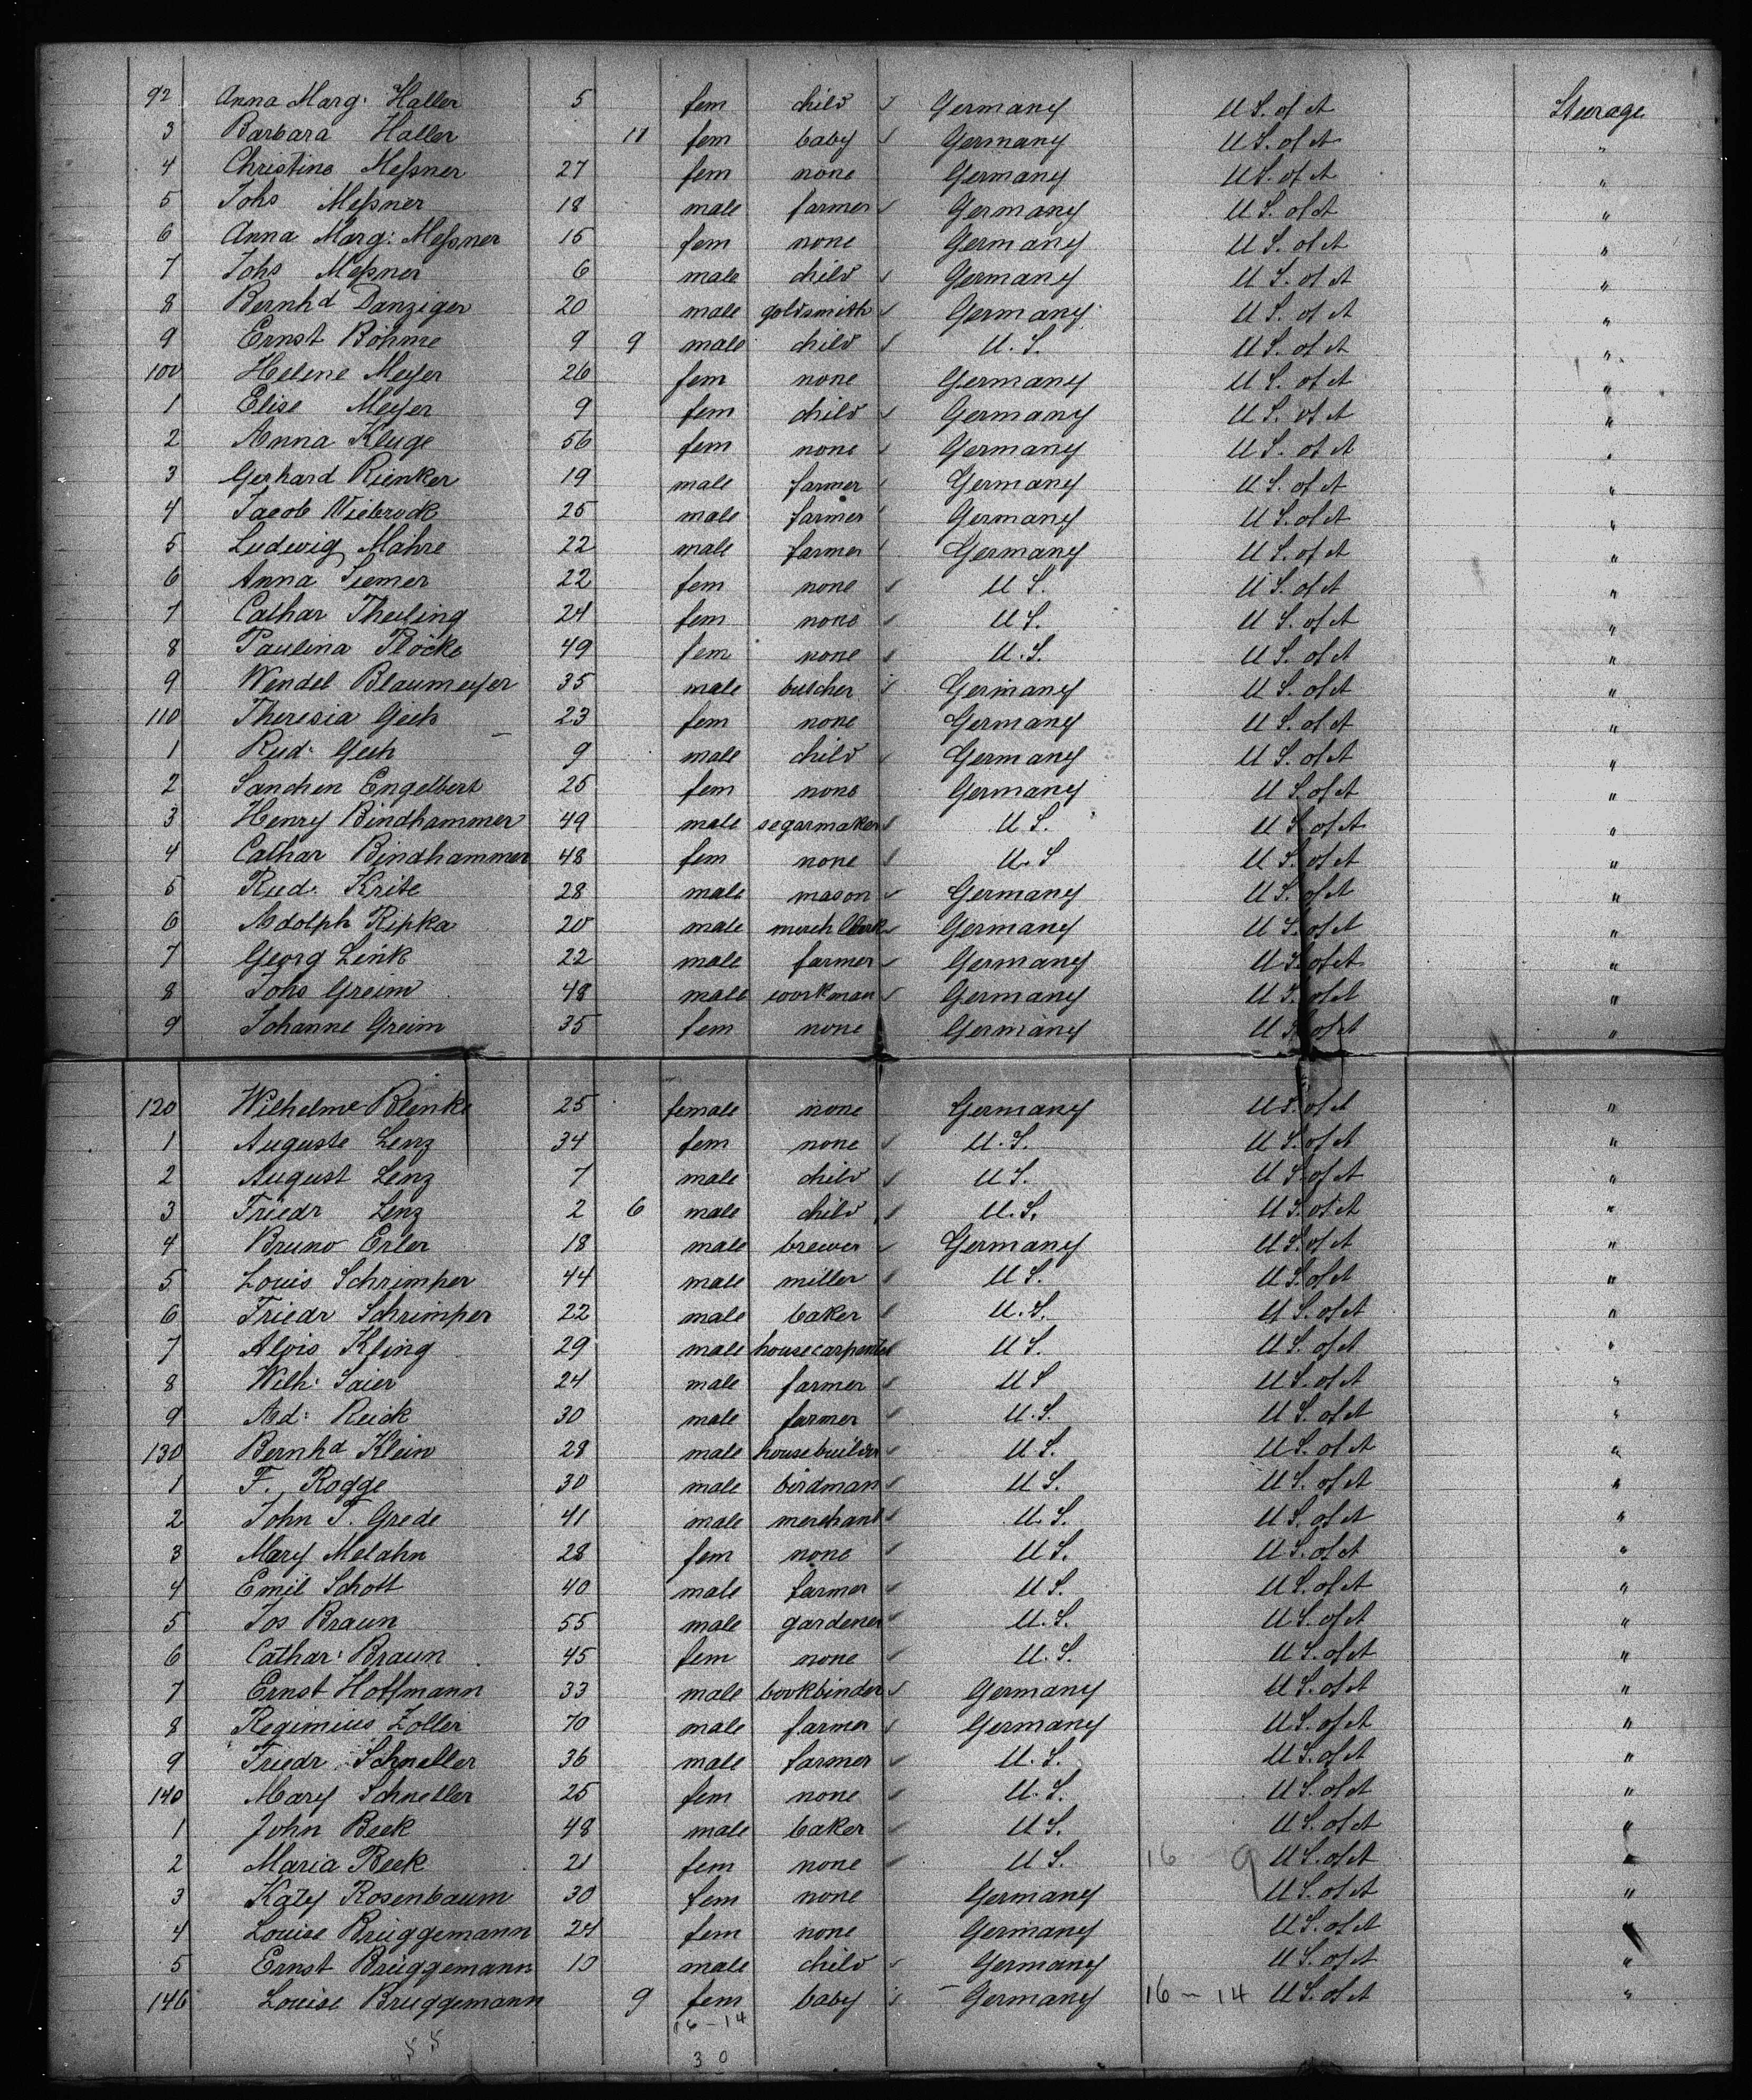 92 Anna Marg: Haller 5 fem child ✓ Germany U S. of A Steerage
3 Barbara Haller 11 fem baby ✓ Germany U S. of A "
4 Christine Meßner 27 fem none Germany U S. of A "
5 Johs Meßner 18 male farmer ✓ Germany U S. of A "
6 Anna Marg: Meßner 15 fem none Germany U S. of A "
7 Johs Meßner 6 male child ✓ Germany U S. of A "
8 Bernhd Danziger 20 male goldsmith ✓ Germany U S. of A "
9 Ernst Böhme 9 9 male child ✓ U. S. U S. of A "
100 Helene Meyer 26 fem none Germany U S. of A "
1 Elise Meyer 9 fem child ✓ Germany U S. of A "
2 Anna Kluge 56 fem none ✓ Germany U S. of A "
3 Gerhard Rienker 19 male farmer ✓ Germany U S. of A "
4 Jacob Wiebrock 25 male farmer ✓ Germany U S. of A "
5 Ludwig Mahre 22 male farmer ✓ Germany U S. of A "
6 Anna Siemer 22 fem none ✓ U S. U S. of A "
7 Cathar Theiling 24 fem none ✓ U S. U S. of A "
8 Paulina Plöcke 49 fem none ✓ U. S. U S. of A "
9 Wendel Blaumeyer 35 male butcher ✓ Germany U S. of A "
110 Theresia Gech 23 fem none Germany U S. of A "
1 Rud: Gech 9 male child ✓ Germany U S. of A "
2 Sanchen Engelbert 25 fem none Germany U S. of A "
3 Henry Bindhammer 49 male segarmaker ✓ U S. U S. of A "
4 Cathar Bindhammer 48 fem none ✓ U. S U S. of A "
5 Rud: Krite 28 male mason ✓ Germany U S. of A "
6 Adolph Ripka 20 male merch Clerk ✓ Germany U S. of A "
7 Georg Link 22 male farmer ✓ Germany U S. of A "
8 Johs Greim 48 male workman ✓ Germany U S. of A "
9 Johanne Greim 35 fem none Germany U S. of A "
120 Wilhelme Blenke 25 female none Germany U S. of A "
1 Auguste Lenz 34 fem none ✓ U. S. U S. of A "
2 August Lenz 7 male child ✓ U S. U S. of A "
3 Friedr Lenz 2 6 male child ✓ U. S. U S. of A "
4 Bruno Erler 18 male brewer ✓ Germany U S. of A "
5 Louis Schrimper 44 male miller ✓ U S. U S. of A "
6 Friedr Schrimper 22 male baker ✓ U. S. U S. of A "
7 Alois Kling 29 male housecarpenter ✓ U S. U S. of A "
8 Wilh: Saier 24 male farmer ✓ U S U S. of A "
9 Ad: Reick 30 male farmer ✓ U. S. U S. of A "
130 Bernhd Klein 28 male housebuilder ✓ U S. U S. of A "
1 F. Rogge 30 male birdman ✓ U S. U S. of A "
2 John F. Grede 41 male merchant ✓ U. S. U S. of A "
3 Mary Melahn 28 fem none ✓ U S. U S. of A "
4 Emil Schott 40 male farmer ✓ U S. U S. of A "
5 Jos Braun 55 male gardener ✓ U. S. U S. of A "
6 Cathar: Braun 45 fem none ✓ U. S. U S. of A "
7 Ernst Hoffmann 33 male bookbinder ✓ Germany U S. of A "
8 Zoller 70 male farmer ✓ Germany U S. of A "
9 Friedr Schneller 36 male farmer ✓ U. S. U S. of A "
140 Mary Schneller 25 fem none ✓ U. S. U S. of A "
1 John Beek 48 male baker ✓ U S. U S. of A "
2 Maria Beek 21 fem none ✓ U S. 16 9 U S. of A "
3 Katy Rosenbaum 30 fem none Germany U S. of A "
4 Louise Brüggemann 24 fem none Germany U S. of A "
5 Ernst Brüggemann 10 male child ✓ Germany U S. of A "
146 Louise Brüggemann 9 fem baby ✓ Germany 16 - 14 U S. of A "
16 - 14
55
30